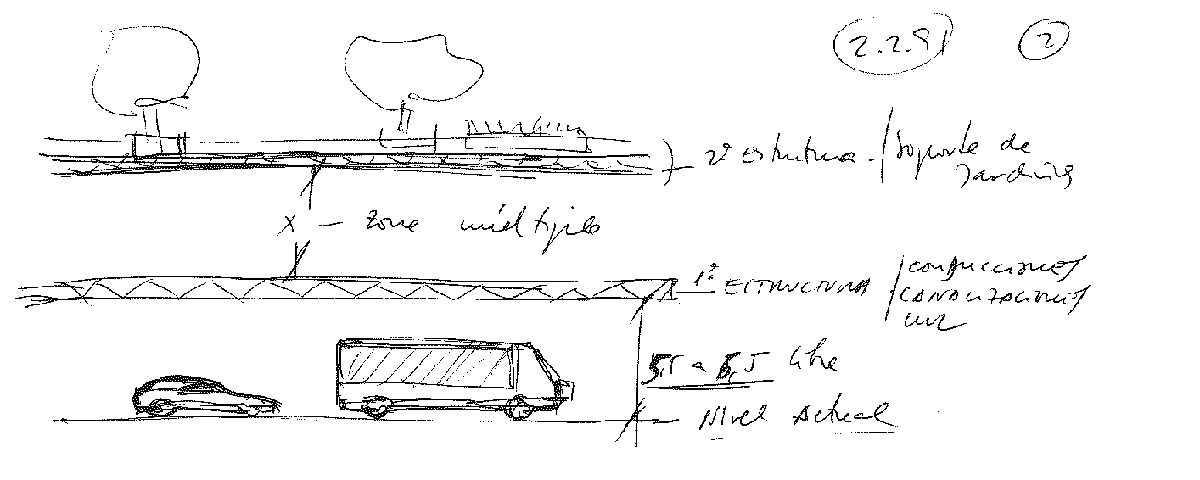 2.2.91 2
2ª Estructura - / Soporte de
Jardines
X - zona múltiple
1ª ESTRUCTURA / CONDUCCIONES
CANALIZACIONES
LUZ
a 5,5 libre
Nivel Actual